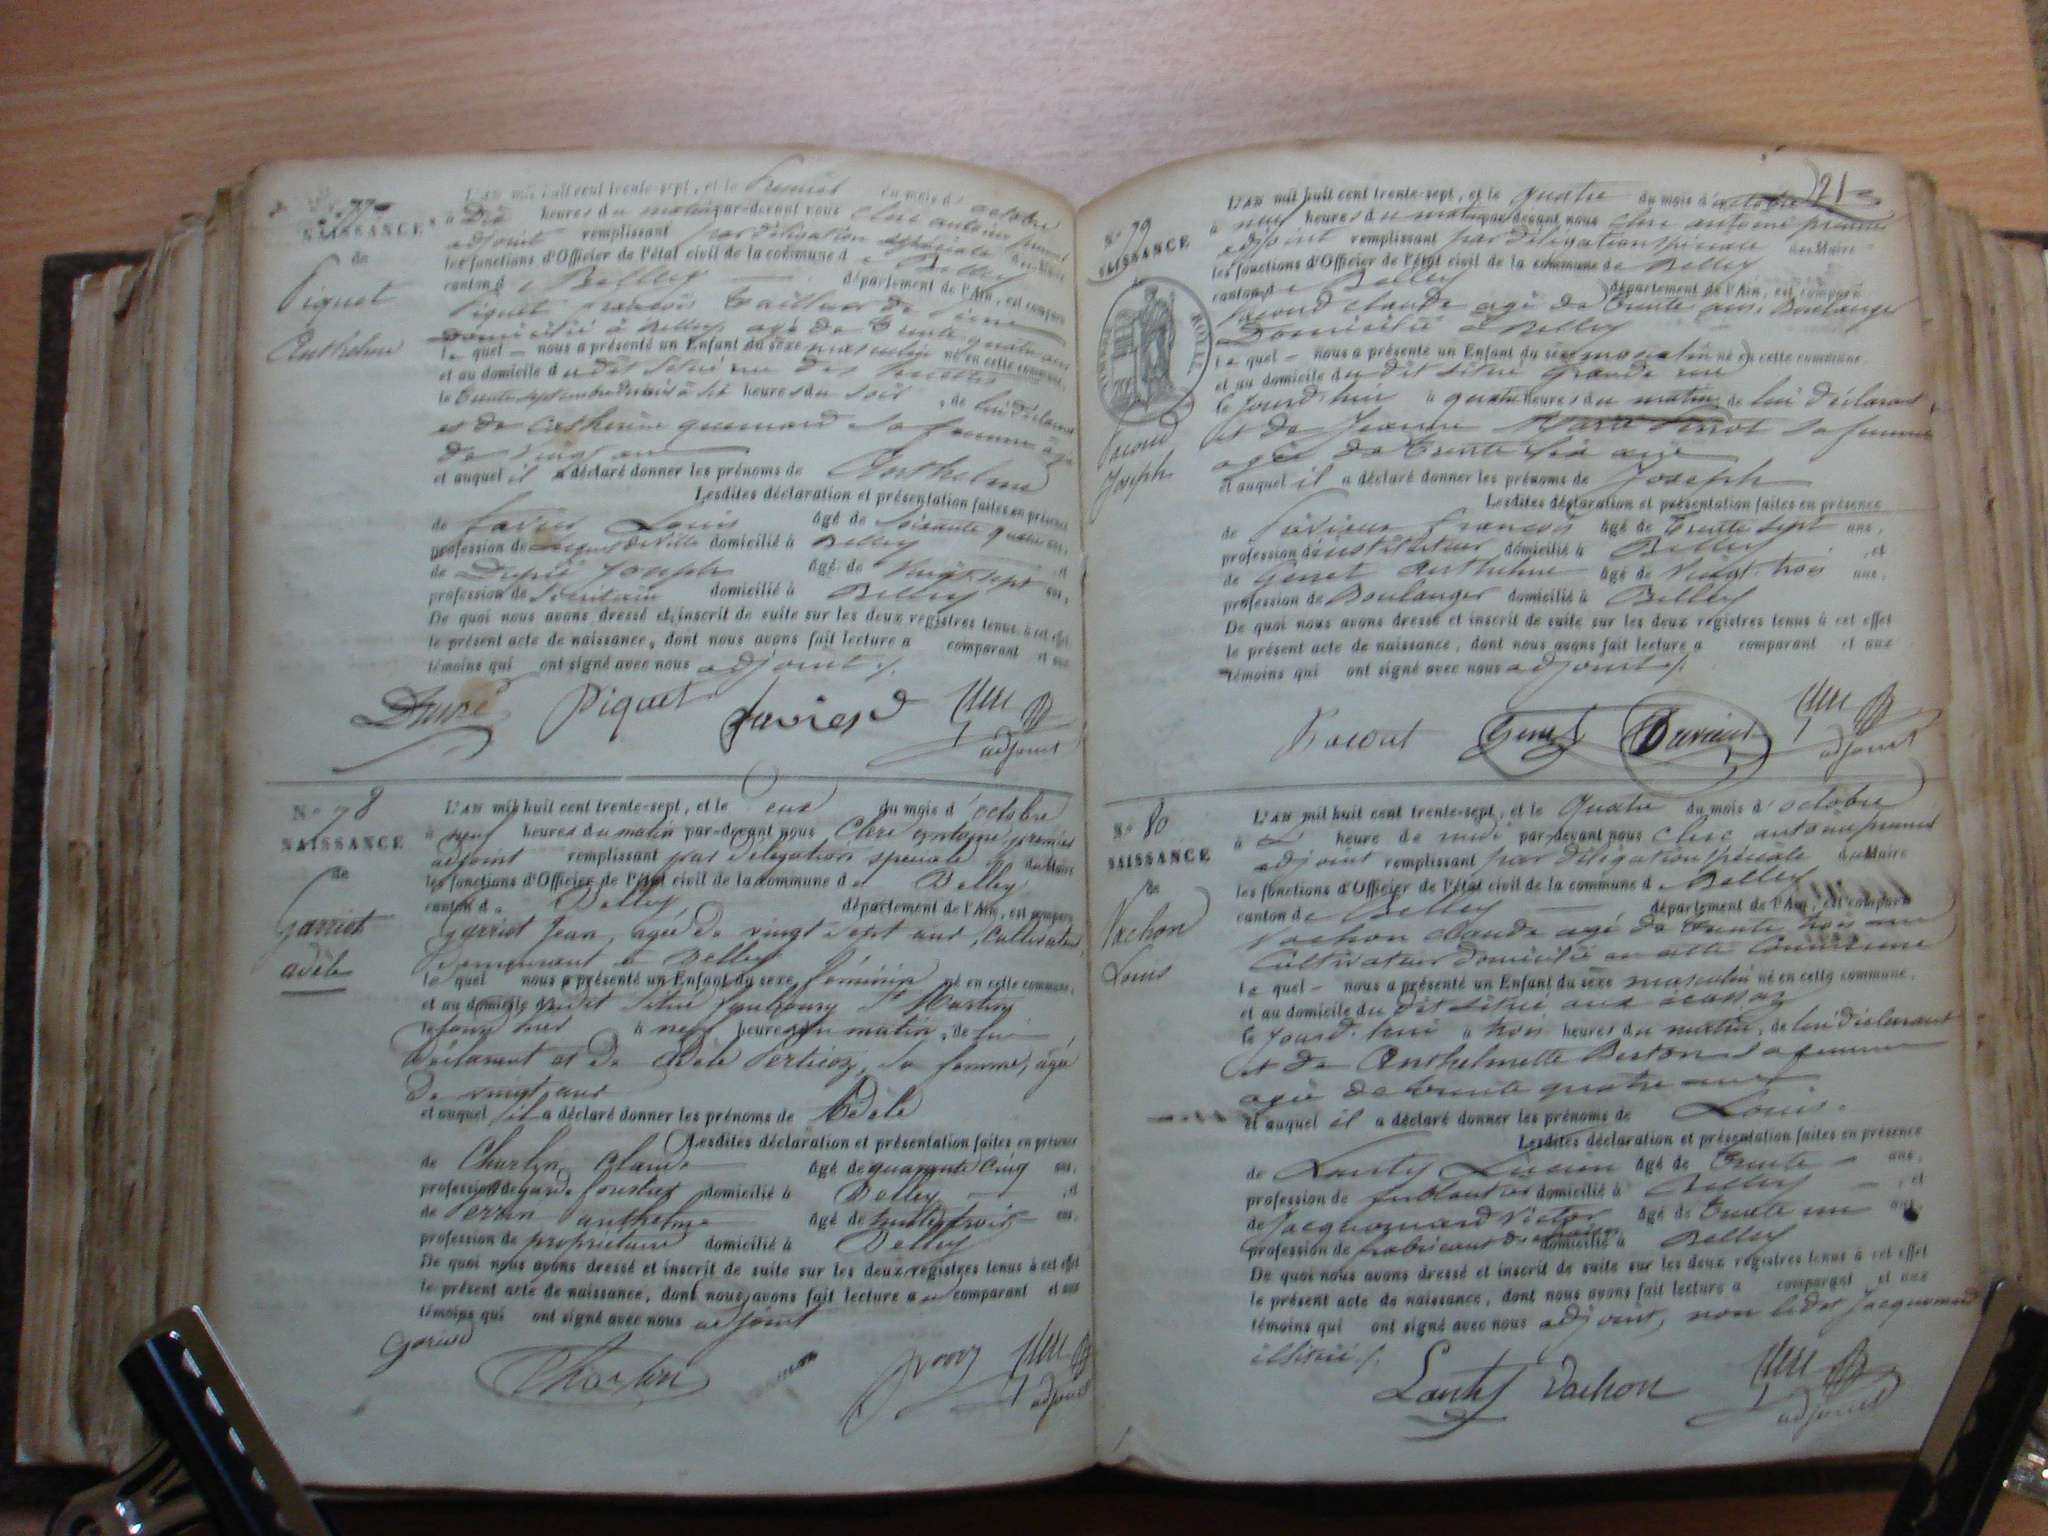 77
NAISSANCE
de
Piquet
Anthelme
L'AN mil huit cent trente-sept, et le premier du mois d'octobre
à Dix heures du matin par-devant nous Clerc antoine premier
adjoint remplissant par délégation spéciale du Maire
les fonctions d'Officier de l'état civil de la commune de Belley
canton de Belley département de l'Ain, est comparu
Piquet françois tailleur de pierre
domicilié à Belley, agé de trente quatre ans
le quel nous a présenté un Enfant du sexe masculin né en cette commune,
et au domicile du dit situé rue des
le trente septembre dernier à six heures du soir, de lui déclarant
et de Catherine sa femme agée
de vingt ans
et auquel il a déclaré donner les prénoms de Anthelme
Lesdites déclaration et présentation faites en présence
de Louis âgé de soixante quatre ans,
profession de domicilié à Belley et
de Dupré Joseph âgé de vingt sept ans,
profession de domicilié à Belley
De quoi nous avons dressé et inscrit de suite sur les deux registres tenus à cet effet
le présent acte de naissance, dont nous avons fait lecture a comparant et aux
témoins qui ont signé avec nous adjoint ./.
Dupré Piquet Clerc
adjoint
N° 78
NAISSANCE
de
Garriot
adèle
L'AN mil huit cent trente-sept, et le deux du mois d'octobre
à neuf heures du matin par-devant nous Clerc antoine premier
adjoint remplissant par délégation spéciale du Maire
les fonctions d'Officier de l'état civil de la commune de Belley
canton de Belley département de l'Ain, est comparu
Garriot Jean, agé de vingt sept ans, Cultivateur
demeurant à Belley
le quel nous a présenté un Enfant du sexe féminin né en cette commune,
et au domicile dudit situé faubourg St Martin
le jour d'hier à neuf heures du matin, de lui
déclarant et de Adèle Perticoz, sa femme, agée
de vingt ans
et auquel il a déclaré donner les prénoms de Adèle
Lesdites déclaration et présentation faites en présence
de Charlin Claude âgé de quarante cinq ans,
profession de garde forestier domicilié à Belley et
de Perrin anthelme âgé de trente trois ans,
profession de propriétaire domicilié à Belley
De quoi nous avons dressé et inscrit de suite sur les deux registres tenus à cet effet
le présent acte de naissance, dont nous avons fait lecture au comparant et aux
témoins qui ont signé avec nous adjoint
Charlin Clerc
adjoint
21
N° 79
NAISSANCE
de
ROYAL
Joseph
L'AN mil huit cent trente-sept, et le quatre du mois d'octobre
à neuf heures du matin par-devant nous Clerc antoine premier
adjoint remplissant par délégation spéciale du Maire
les fonctions d'Officier de l'état civil de la commune de Belley
canton de Belley département de l'Ain, est comparu
claude agé de trente ans, Boulanger
Domicilié à Belley
le quel nous a présenté un Enfant du sexe masculin né en cette commune
et au domicile du dit situé grande rue
le jourd'hui à quatre heures du matin, de lui déclarant
et de Jeanne Marie sa femme
agée de trente six ans
et auquel il a déclaré donner les prénoms de Joseph
Lesdites déclaration et présentation faites en présence
de françois âgé de trente sept ans,
profession d'instituteur domicilié à Belley et
de Genet Anthelme âgé de vingt trois ans,
profession de Boulanger domicilié à Belley
De quoi nous avons dressé et inscrit de suite sur les deux registres tenus à cet effet
le présent acte de naissance, dont nous avons fait lecture a comparant et aux
témoins qui ont signé avec nous adjoint ./.
Genet Clerc
adjoint
N° 80
NAISSANCE
de
Vachon
Louis
L'AN mil huit cent trente-sept, et le quatre du mois d'octobre
à heure de midi par-devant nous Clerc antoine premier
adjoint remplissant par délégation spéciale du Maire
les fonctions d'Officier de l'état civil de la commune de Belley
canton de Belley département de l'Ain, est comparu
Vachon claude agé de trente trois ans
Cultivateur domicilié en cette Commune
le quel nous a présenté un Enfant du sexe masculin né en cette commune,
et au domicile du dit situé aux écassaz
le jourd'hui à trois heures du matin, de lui déclarant
et de Anthelmette Berton sa femme
agée de trente quatre ans
et auquel il a déclaré donner les prénoms de Louis.
Lesdites déclaration et présentation faites en présence
de Lanty Lucien âgé de trente ans,
profession de ferblantier domicilié à Belley et
de Jacquemard Victor âgé de trente un ans,
profession de fabricant de chaises domicilié à Belley
De quoi nous avons dressé et inscrit de suite sur les deux registres tenus à cet effet
le présent acte de naissance, dont nous avons fait lecture a comparant et aux
témoins qui ont signé avec nous adjoint, non ledit Jacquemard
illitéré ./.
Lanty Vachon Clerc
adjoint